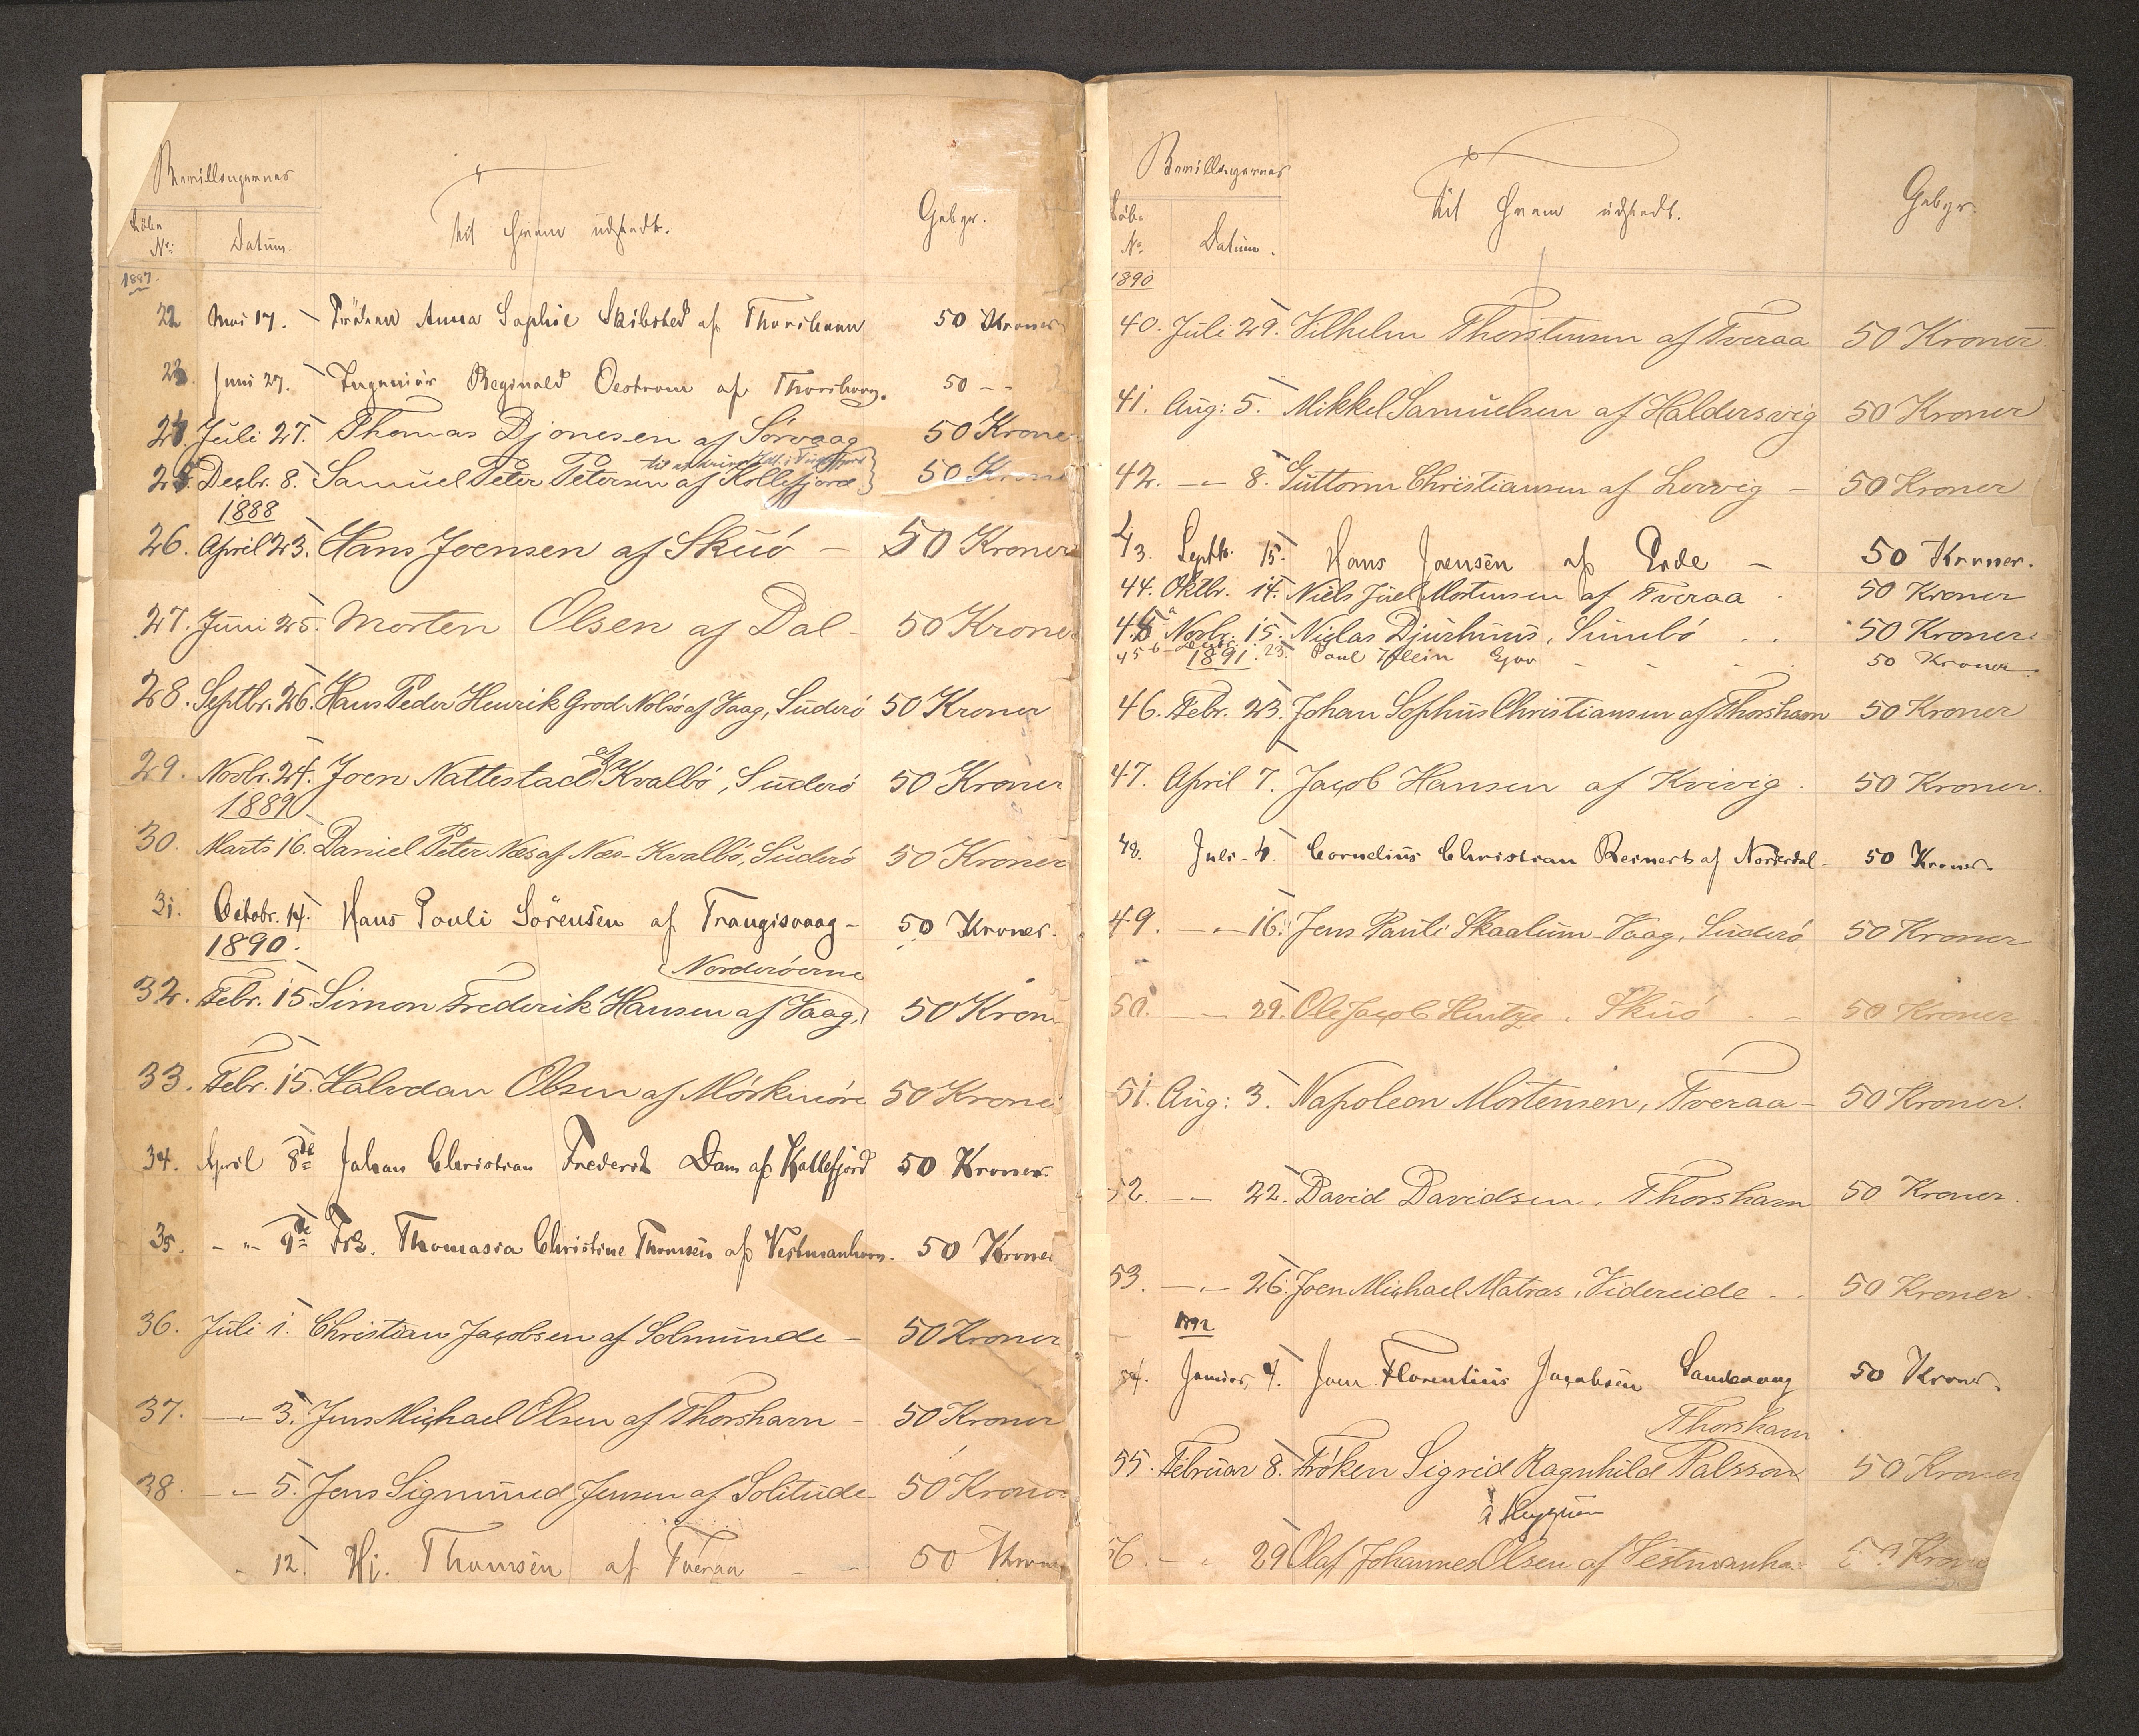 Bevillingernes
Löbe
No: Datum. Til Hvem udstedt. Gebyr.
1887.
22 Mai 17. Fröken Anna Sophie Skibsted af Thorshavn 50 Kroner
23 Juni 27. Ingeniör Reginald Oestrom af Thorshavn. 50 - -
24. Juli 27. Thomas Djonesen af Sörvaag 50 Kroner
25. Decbr. 8. Samuel Peter Petersen af Kollefjord 50 Kroner
1888
26. April 23. Hans Joensen af Skuö - 50 Kroner
27. Juni 25. Morten Olsen af Dal - 50 Kroner
28. Septbr. 26. Hans Peder Henrik Grod Nolsö af Vaag, Suderö 50 Kroner
29. Novbr. 24. Joen Nattestad af Kvalbö, Suderö 50 Kroner
1889
30. Marts 16. Daniel Peter Næs af Næs - Kvalbö, Suderö 50 Kroner
31. Octobr. 14. Hans Pauli Sörensen af Trangisvaag - 50 Kroner.
1890.
Norderöerne
32. Febr. 15. Simon Frederik Hansen af Vaag, 50 Kron
33. Febr. 15. Halvdan Olsen af Mörkinöre 50 Krone
34. April 8de Johan Christian Frederik Dam af Kollefjord 50 Kroner.
35. - " - 9de Frk. Thomasia Christine Thomsen af Vestmanhavn. 50 Kroner
36. Juli 1. Christian Jacobsen af Solmunde - 50 Kroner
37. - " - 3. Jens Michael Olsen af Thorshavn - 50 Kroner
38. - " - 5. Jens Sigmund Jensen af Solitude - 50 Kroner
12. Hj. Thomsen af Tveraa - - 50 Kroner
Bevillingernes
Löbe
No. Datum. Til Hvem udstedt. Gebyr.
1890
40. Juli 29. Vilhelm Thorstensen af Tveraa 50 Kroner.
41. Aug: 5. Mikkel Samuelsen af Haldersvig 50 Kroner
42. - " - 8. Guttorm Christiansen af Lervig - 50 Kroner
43. Septbr. 15. Hans Joensen af Eide - 50 Kroner.
44. Oktbr. 14. Niels Juel Mortensen af Tveraa . 50 Kroner
45 a Novbr. 15. Niclas Djurhuus, Sumbö . . 50 Kroner
45 b Decbr. 23. Paul Klein Gjov - - - 50 Kroner.
1891.
46. Febr. 23. Johan Sophus Christiansen af Thorshavn 50 Kroner
47. April 7. Jacob Hansen af Kvivig . 50 Kroner.
48. Juli - 4. Cornelius Christian Reinert af Norderdal - 50 Kroner.
49. - " - 16. Jens Pauli Skaalum - Vaag, Suderö 50 Kroner
50. - " - 29. Ole Jacob Hentze . Skuö . - 50 Kroner
51. Aug: 3. Napoleon Mortensen, Tveraa - 50 Kroner.
52. - " - 22. David Davidsen . Thorshavn 50 Kroner.
53. - " - 26. Joen Michael Matras, Videreide . . 50 Kroner.
1892
54. Januar, 4. Joen Florentius Jacobsen Sandevaag 50 Kroner.
Thorshavn
55. Februar 8. Fröken Sigrid Ragnhild Palsson 50 Kroner
i Heyguen
56. - " 29 Olaf Johannes Olsen af Vestmanha 50 Krone